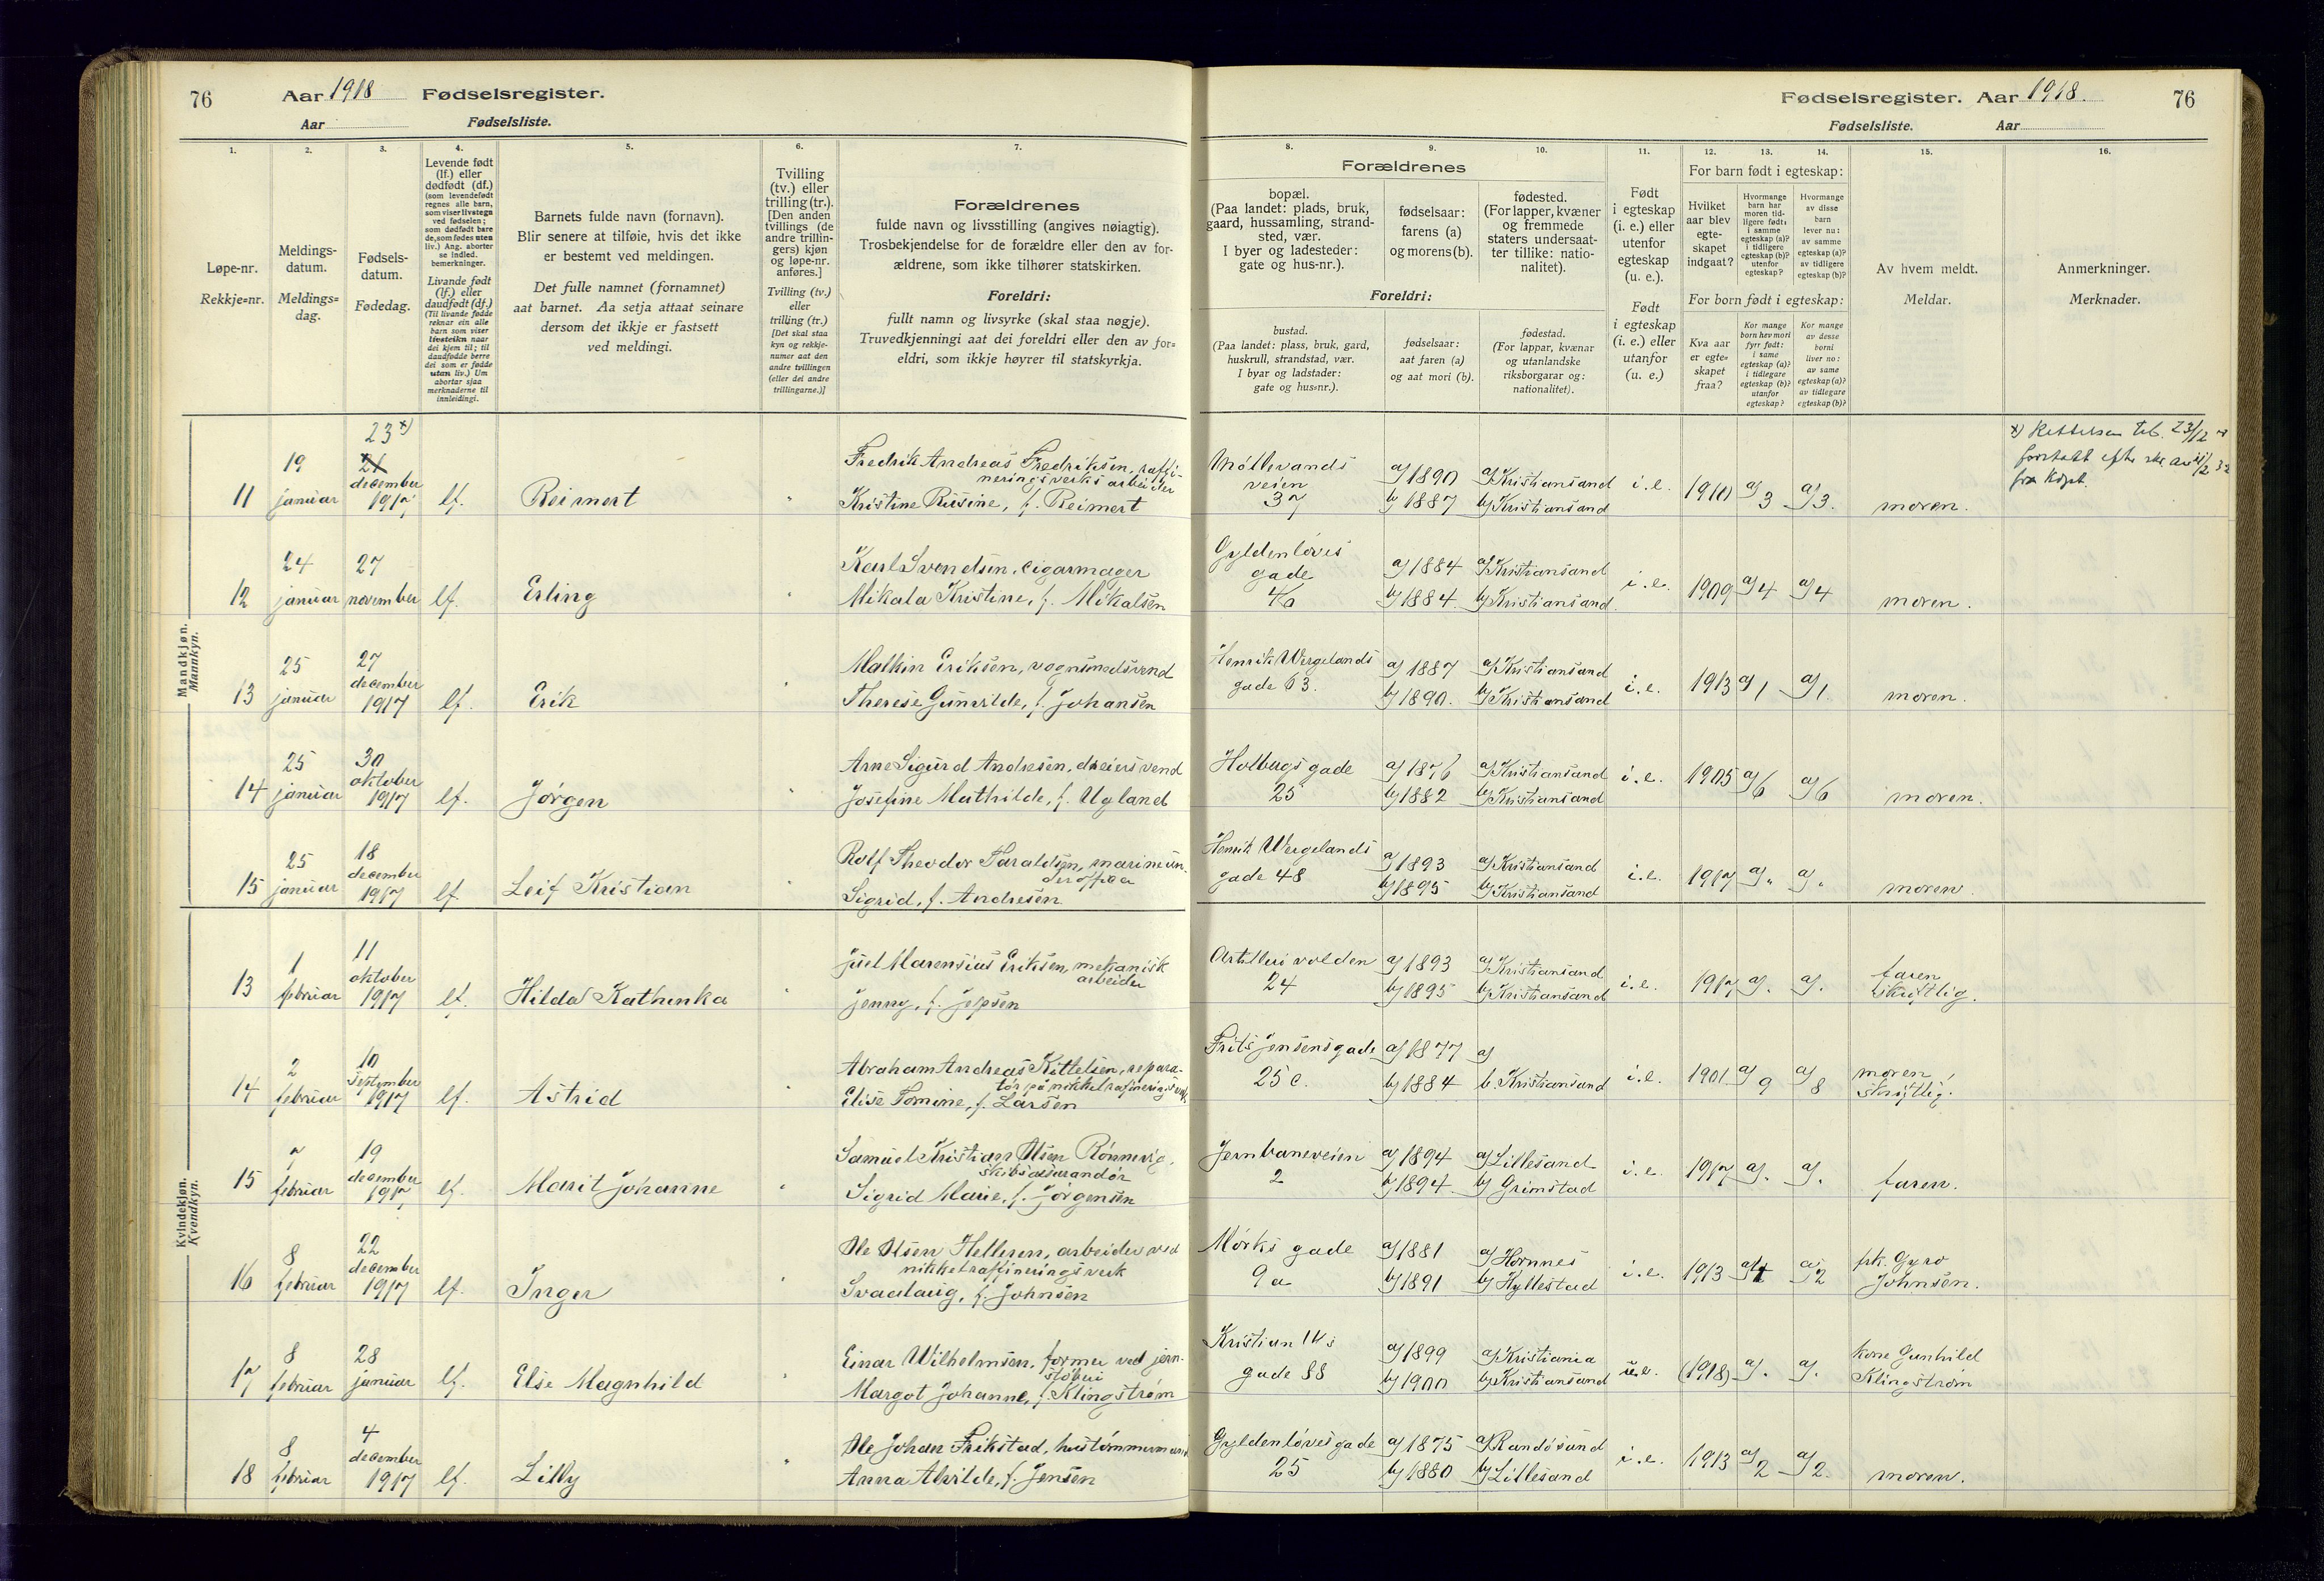 76
Aar 1918 Fødselsregister.
Aar
Fødselsliste.
1.
2.
3.
4.
5.
6.
7.
Løpe-nr.
Rekkje-nr.
Meldings-
datum.
Meldings-
dag.
Fødsels-
datum.
Fødedag.
Levende født
(lf.) eller
dødfødt (df.)
(som levendefødt
regnes alle barn,
som viser livstegn
ved fødselen;
som dødfødt bare
de, som fødes uten
liv.) Ang. aborter
se indled.
bemerkninger.
Livande født
(lf.) eller
daudfødt (df.)
(Til livande fødde
reknar ein alle
barn som viser
livsteikn naar
dei kjem til; til
daudfødde berre
dei som er fødde
utan liv.) Um
abortar sjaa
merknaderne til
innleidingi.
Barnets fulde navn (fornavn).
Blir senere at tilføie, hvis det ikke
er bestemt ved meldingen.
Det fulle namnet (fornamnet)
aat barnet. Aa setja attaat seinare
dersom det ikkje er fastsett
ved meldingi.
Tvilling
(tv.) eller
trilling (tr.).
[Den anden
tvillings (de
andre trillin-
gers) kjøn
og løpe-nr.
anføres.]
Tvilling (tv.)
eller
trilling (tr.)
[Det skal staa
kyn og rekkje-
numer aat den
andre tvillingen
(eller dei andre
trillingarne.)]
Forældrenes
fulde navn og livsstilling (angives nøiagtig).
Trosbekjendelse for de forældre eller den av for-
ældrene, som ikke tilhører statskirken.
Foreldri:
fullt namn og livsyrke (skal staa nøgje).
Truvedkjenningi aat dei foreldri eller den av for-
eldri, som ikkje høyrer til statskyrkja.
Mandkjøn.
Mannkyn.
23 x)
11 19 januar 21 december 1917 lf. Reimert
Fredrik Andreas Fredriksen, raffi-
neringsverks arbeider
Kristine Rusine, f. Reimert
12 24 januar 27 november lf. Erling
Karl Svendsen, cigarmager
Mikala Kristine, f. Mikalsen
13 25 januar 27 december 1917 lf. Erik
Malkin Eriksen, vognsmedsvend
Therese Gunvilde, f. Johansen
14 25 januar 30 oktober 1917 lf. Jørgen
Arne Sigurd Andresen, dreiersvend
Josefine Mathilde, f. Ugland
15 25 januar 18 december 1917 lf. Leif Kristian
Rolf Theodor Taraldsen, marineun-
deroffiser
Sigrid, f. Andresen
Kvindekjøn.
Kvendkyn.
13 1 februar 11 oktober 1917 lf. Hilda Kathinka
Juel Marensius Eriksen, mekanisk
arbeider
Jenny, f. Jepsen
14 2 februar 10 september 1917 lf. Astrid
Abraham Andreas Kittelsen, repara-
tør på nikkelraffineringsverk.
Elise Tomine, f. Larsen
15 7 februar 19 december 1917 lf. Marit Johanne
Samuel Kristian Olsen Rønnevig,
skibsassurandør
Sigrid Marie, f. Jørgensen
16 8 februar 22 december 1917 lf. Inger
Ole Olsen Helleren, arbeider ved
nikkelraffineringsverk
Svaalaug, f. Johnsen
17 8 februar 28 januar lf. Else Magnhild
Einar Wilhelmsen, former ved jern-
støberi
Margot Johanne, f. Klingstrøm
18 8 februar 4 december 1917 lf. Lilly
Ole Johan Frikstad, hustømmermand
Anna Alvilde, f. Jensen
Fødselsregister. Aar 1918. 76
Fødselsliste. Aar
8.
9.
10.
11.
12.
13.
14.
15.
16.
Forældrenes
bopæl.
(Paa landet: plads, bruk,
gaard, hussamling, strand-
sted, vær.
I byer og ladesteder:
gate og hus-nr.).
fødselsaar:
farens (a)
og morens (b).
fødested.
(For lapper, kvæner
og fremmede
staters undersaat-
ter tillike: natio-
nalitet).
Foreldri:
bustad.
(Paa landet: plass, bruk, gard,
huskrull, strandstad, vær.
I byar og ladstader:
gate og hus-nr.).
fødselsaar:
aat faren (a)
og aat mori (b).
fødestad.
(For lappar, kvænar
og utanlandske
riksborgarar og:
nationalitet).
Født
i egteskap
(i. e.) eller
utenfor
egteskap
(u. e.).
Født
i egteskap
(i. e.) eller
utanfor
(u. e.)
For barn født i egteskap:
Hvilket
aar blev
egte-
skapet
indgaat?
Hvormange
barn har
moren tid-
ligere født:
i samme
egteskap (a)?
i tidligere
egteskap (b)?
utenfor
egteskap?
Hvormange
av disse
barn
lever nu:
av samme
egteskap (a)?
av tidligere
egteskap (b)?
For born født i egteskap:
Kva aar
er egte-
skapet
fraa?
Kor mange
born hev mori
fyrr født:
i same
egteskap (a)?
i tidlegare
egteskap (b)?
utanfor
egteskap?
Kor mange
av desse
borni
liver no:
av same
egteskap (a)?
av tidlegare
egteskap (b)?
Av hvem meldt.
Meldar.
Anmerkninger.
Merknader.
Møllevands
veien
37
a) 1890 a) Kristiansand
b) 1887 b) Kristiansand
i. e. 1910 a) 3 a) 3. moren.
x) Rettelsen
Gyldenløves
gade
46
a) 1884 a) Kristiansand
b) 1884. b) Kristiansand
i. e. 1909 a) 4 a) 4 moren.
Henrik Wergelands
gade 63.
a) 1887 a) Kristiansand
b) 1890. b) Kristiansand
i. e. 1913 a) 1 a) 1. moren.
Holbergs gade
25
a) 1876 a) Kristiansand
b) 1882 b) Kristiansand
i. e. 1905 a) 6 a) 6 moren.
Henrik Wergelands
gade 48
a) 1893 a) Kristiansand
b) 1895 b) Kristiansand
i. e. 1917 a) „ a) „ moren.
Artillerivolden
24
a) 1893 a) Kristiansand
b) 1895 b) Kristiansand
i. e. 1917 a). a). faren
skriftlig.
Frits Jensens gade
25 c.
a) 1877 a)
b) 1884 b. Kristiansand
i. e. 1901 a) 9 a) 8 moren,
skriftlig.
Jernbaneveien
2
a) 1894 a) Lillesand
b) 1894. b) Grimstad
i. e. 1917 a). a). faren.
Mørks gade
9 a
a) 1881 a) Hornnes
b) 1891 b) Hyllestad
i. e. 1913 a) a) 2 frk. Gyro
Johnsen.
Kristian IVs
gade 88
a) 1899 a) Kristiania
b) 1900 b) Kristiansand
u. e. (1918) a). a). kone Gunhild
Klingstrøm
Gyldenløves gade
25
a) 1875 a) Randøsund
b) 1880 b) Lillesand
i. e. 1913 a) 2 a) 2. moren.